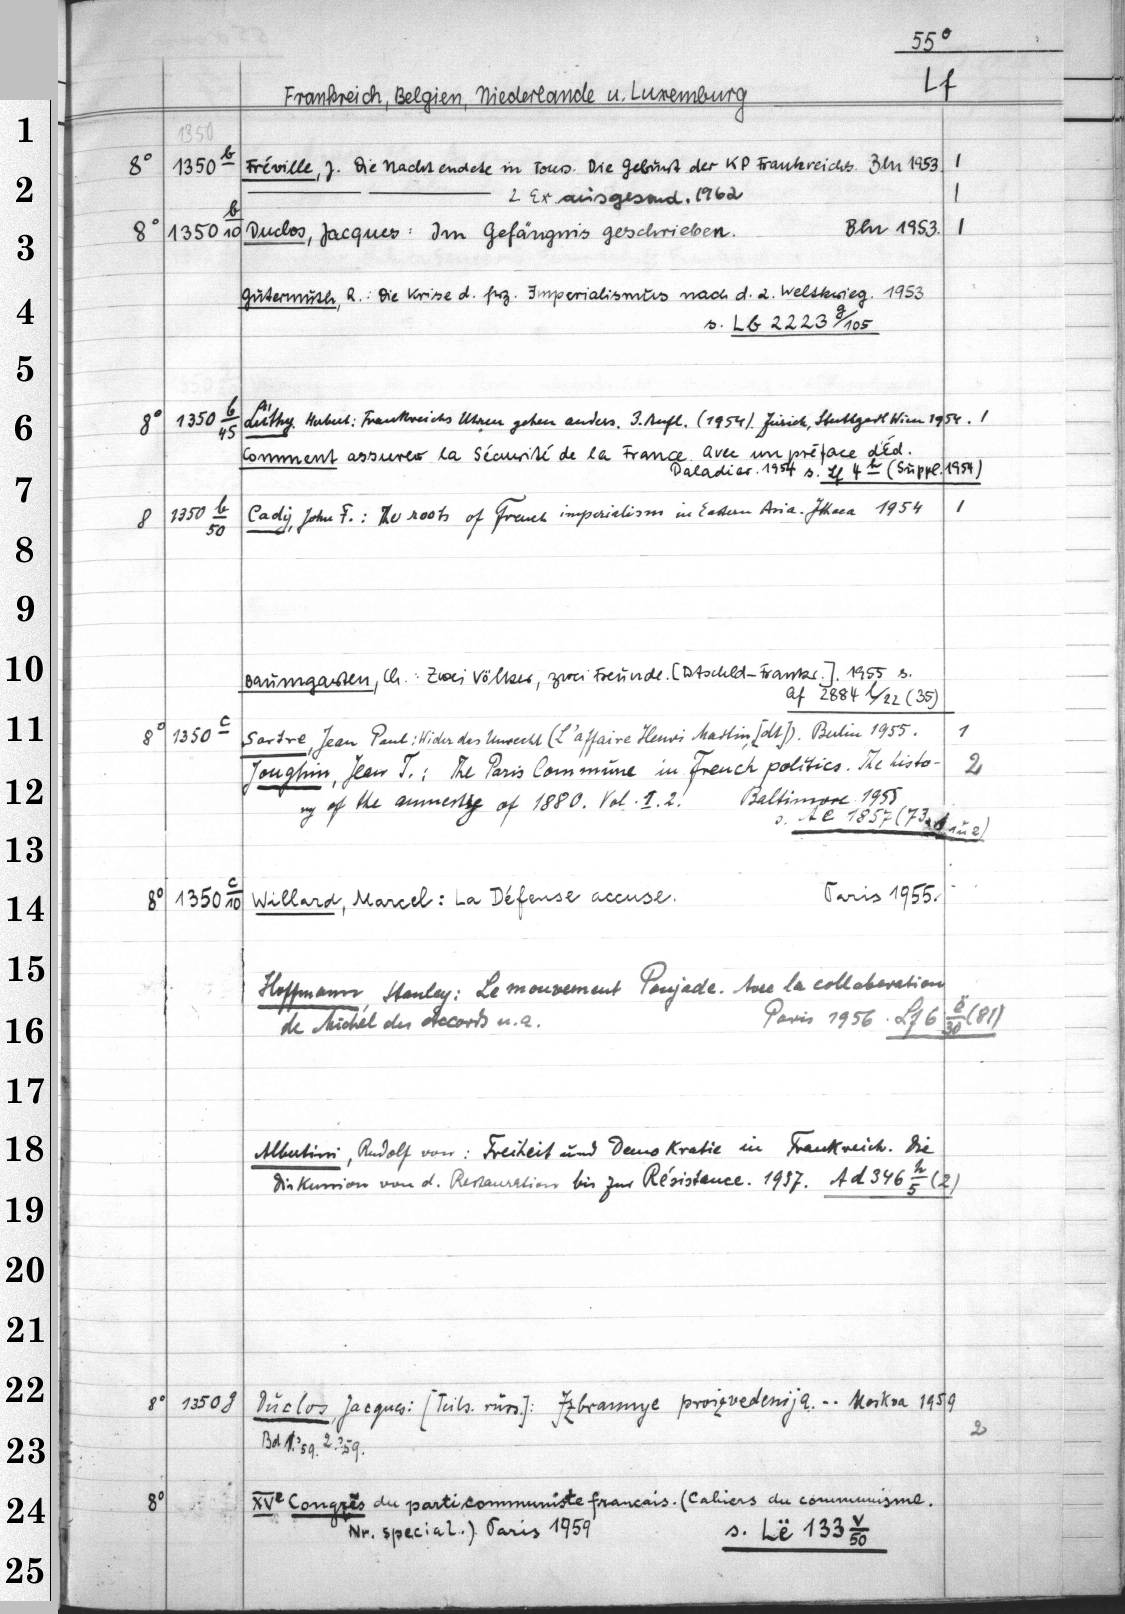 55°
Lf
Frankreich, Belgien, Niederlande u. Luxemburg
1
1350
8° 1350 b Fréville, J. Die Nacht endete in Tours. Die Geburt der KP Frankreichs. Bln 1953. 1
2
2 Ex ausgesond. 1962 1
8° 1350 b/10 Duclos, Jacques: Im Gefängnis geschrieben. Bln 1953. 1
3
Gutermuth, R.: Die Krise d. frz. Imperialismus nach d. 2. Weltkrieg. 1953
4
s. Lb 2223 g/105
5
6
8° 1350 b/45 Lüthy, Herbert: Frankreichs Uhren gehen anders. 3. Aufl. (1954). Zürich, Stuttgart Wien 1954. 1
Comment assurer la Sécurité de la France. Avec un préface d'Éd.
Daladier. 1954 s. Lf 4 h (Suppl. 1954)
7
8 1350 b/50 Cady, John F.: The roots of French imperialism in Eastern Asia. Ithaca 1954 1
8
9
10
Baumgarten, Ch.: Zwei Völker, zwei Freunde. [Dtschld-Frankr.]. 1955 s.
Af 2884 l/22 (35)
11
8° 1350 c Sartre, Jean Paul: Wider das Unrecht (L'affaire Henri Martin, [dt]). Berlin 1955. 1
Joughin, Jean T.: The Paris Commune in French politics. The histo- 2
12
ry of the amnesty of 1880. Vol. 1. 2. Baltimore 1955
s. Ae 1857 (73, 1 u 2)
13
8° 1350 c/10 Willard, Marcel: La Défense accuse. Paris 1955.
14
15
Hoffmann, Stanley: Le mouvement Poujade. Avec la collaboration
de Michel des Accords u.a. Paris 1956. Lf 6 ë/30 (81)
16
17
18
Albertini, Rudolf von: Freiheit und Demokratie in Frankreich. Die
Diskussion von d. Restauration bis zur Résistance. 1957. Ad 346 h/5 (2)
19
20
21
22
8° 1350 g Duclos, Jacques: [Teils. russ.]: Izbrannye proizvedenija. -- Moskva 1959
2
Bd 1. 59. 2. 59.
23
8° XVe Congrès du parti communiste francais. (Cahiers du communisme.
24
Nr. special.) Paris 1959 s. Lë 133 v/50
25